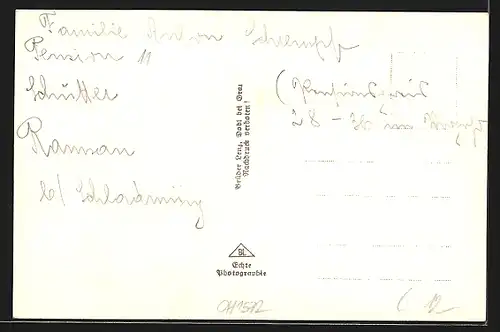 Familie Anton Schrempf
Pension "
Schütter
Ramsau
b/ Schladming
(Pensionspreis
28 -
Brüder Lenz, Dobl bei Graz
Nachdruck verboten!
BL
Echte
Photographie
CH1572
( 12